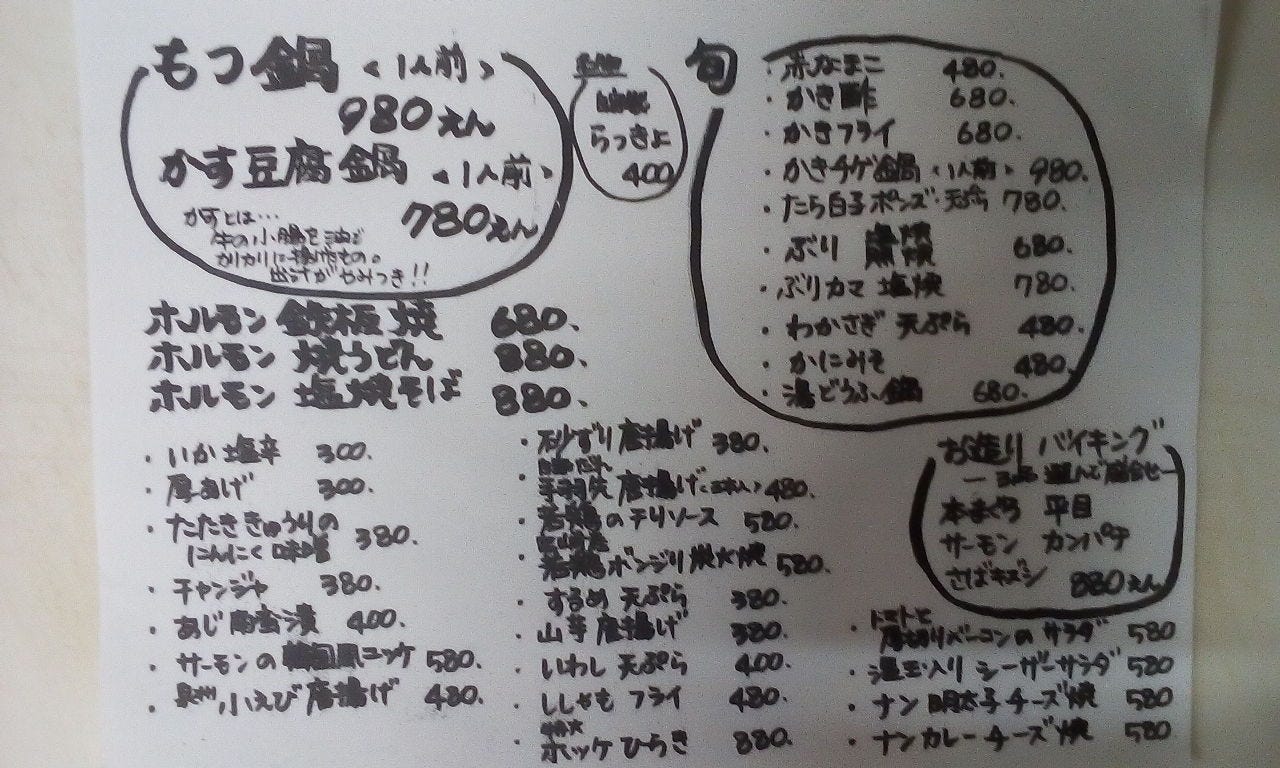 もつ鍋 <1人前>
980えん
かす豆腐鍋 <1人前>
780えん
かすとは…
牛の小腸を油で
カリカリに揚げたもの。
出汁がやみつき!!
らっきょ
400
旬
・赤なまこ 480.
・かき酢 680.
・かきフライ 680.
・かきチゲ鍋 <1人前> 980.
・たら白子ポンズ・天ぷら 780.
・ぶり 塩焼 照焼 680.
・ぶりカマ 塩焼 780.
・わかさぎ 天ぷら 480.
・かにみそ 480.
・湯どうふ鍋 680.
ホルモン 鉄板焼 680.
ホルモン 焼うどん 880.
ホルモン 塩焼そば 880.
・いか塩辛 300.
・厚あげ 300.
・たたききゅうりの
にんにく味噌 380.
・チャンジャ 380.
・あじ南蛮漬 400.
・サーモンの韓国風ユッケ 580.
・泉州小えび唐揚げ 480.
・砂ずり唐揚げ 380.
・手羽先 唐揚げ<三本入> 480.
・若鶏のチリソース 580.
・若鶏ボンジリ炭火焼 580.
・するめ 天ぷら 380.
・山芋 唐揚げ 380.
・いわし 天ぷら 400.
・ししゃも フライ 480.
特大
・ホッケひらき 880.
お造り バイキング
ー 3つ 選んで 盛合せー
本まぐろ 平目
サーモン カンパチ
さばキズシ 880えん
・トマトと
厚切りベーコンの サラダ 580
・温玉入り シーザーサラダ 580
・ナン 明太子チーズ焼 580
・ナンカレーチーズ焼 580